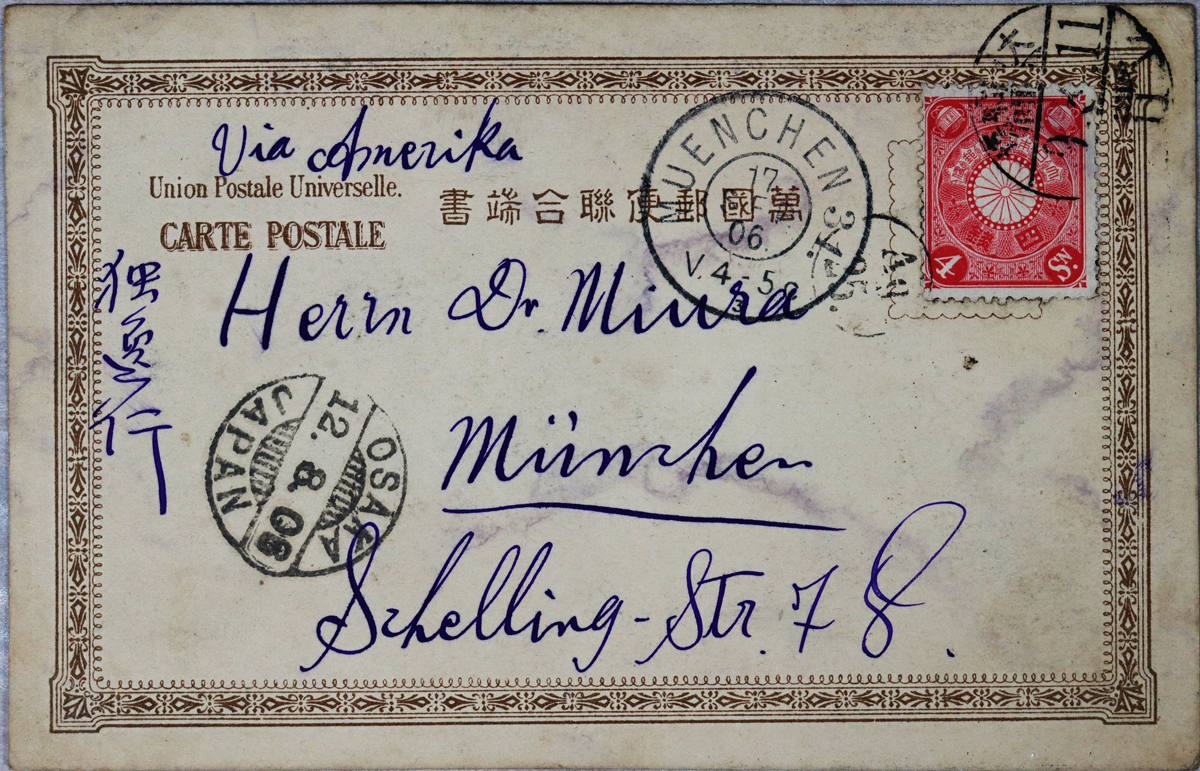 Via Amerika
Union Postale Universelle.
CARTE POSTALE
萬國郵便聯合端書
MUENCHEN 31.
17
06
V. 4-5
4 Sn.
Herrn Dr. Miura
München
Schelling-Str. 78.
行
OSAKA
12. 8. 05
JAPAN